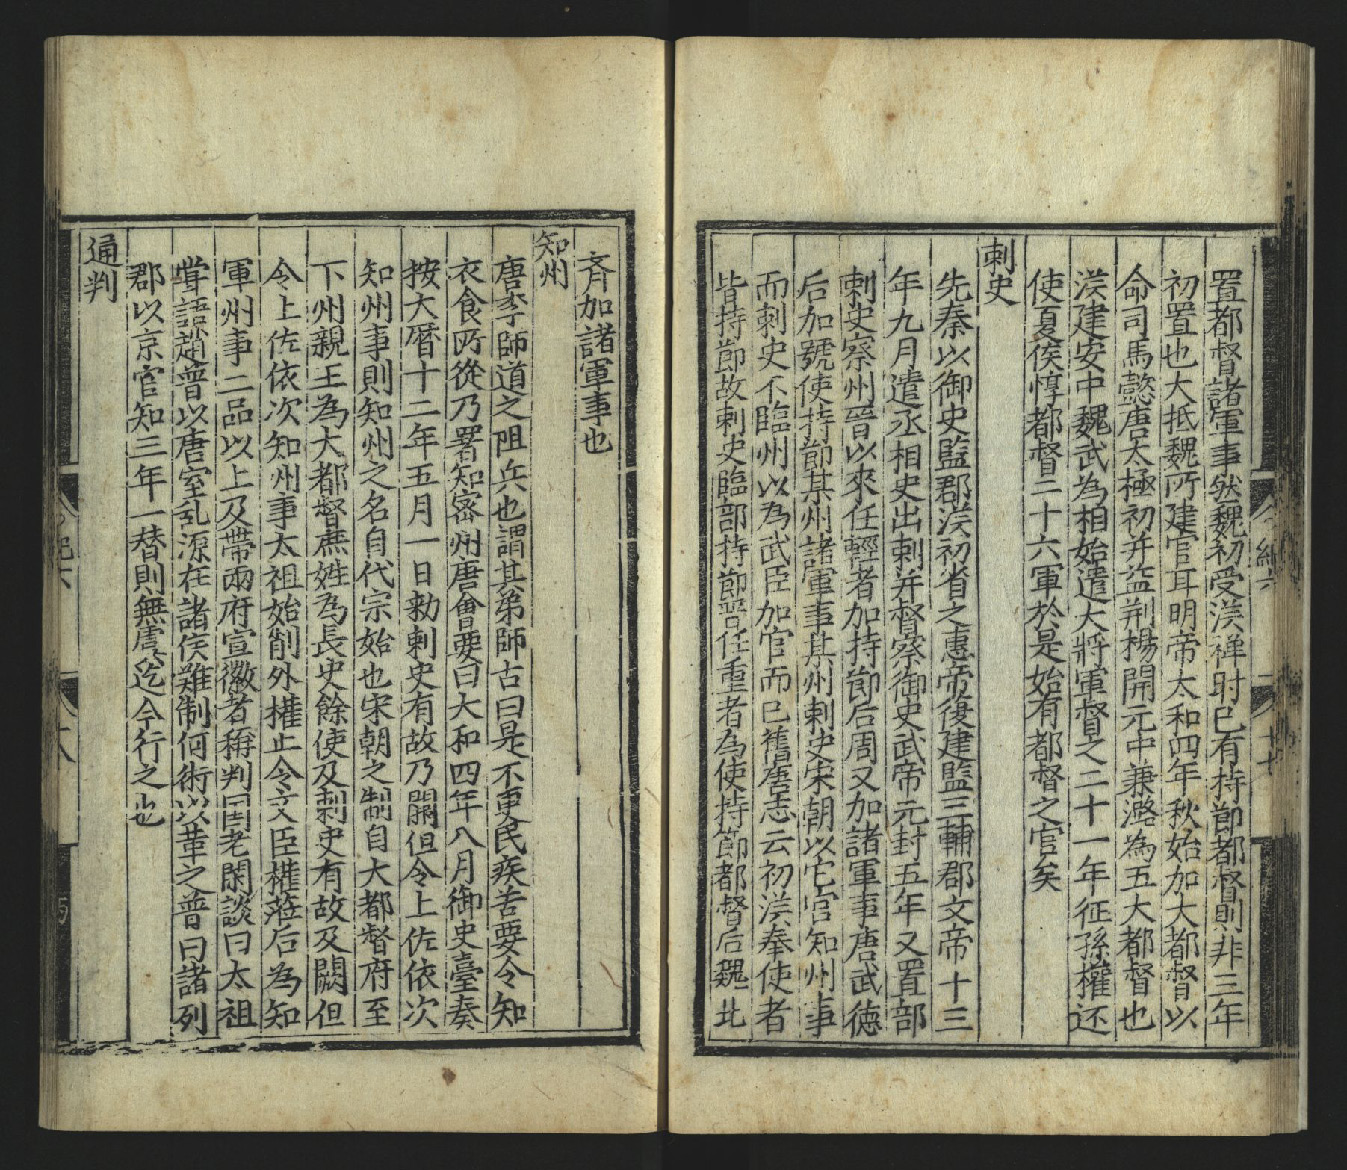 置都督諸軍事然魏初受漢禪時已有持節都督則非三年
初置也大抵魏所建官耳明帝太和四年秋始加大都督以
命司馬懿唐太極初并益荆楊開元中兼潞為五大都督也
漢建安中魏武為相始遣大將軍督之二十一年征孫權还
使夏侯惇都督二十六軍於是始有都督之官矣
刺史
先秦以御史監郡漢初省之惠帝後建監三輔郡文帝十三
年九月遣丞相史出刺并督察御史武帝元封五年又置部
刺史察州晉以來任輕者加持節后周又加諸軍事唐武德
后加號使持節某州諸軍事某州刺史宋朝以它官知州事
而刺史不臨州以為武臣加官而已舊唐志云初漢奉使者
皆持節故刺史臨部持節晉任重者為使持節都督后魏北
齐加諸軍事也
知州
唐李師道之阻兵也謂其弟師古曰是不更民疾苦要令知
衣食所從乃署知密州唐會要曰大和四年八月御史臺奏
按大曆十二年五月一日勑刺史有故乃闕但令上佐依次
知州事則知州之名自代宗始也宋朝之制自大都督府至
下州親王為大都督庶姓為長史餘使及刺史有故及闕但
令上佐依次知州事太祖始削外權止令文臣權蒞后為知
軍州事二品以上及帶兩府宣徽者稱判田老閑談曰太祖
嘗語趙普以唐室乱源在諸侯難制何術以革之普曰諸列
郡以京官知三年一替則無虞迄今行之也
通判